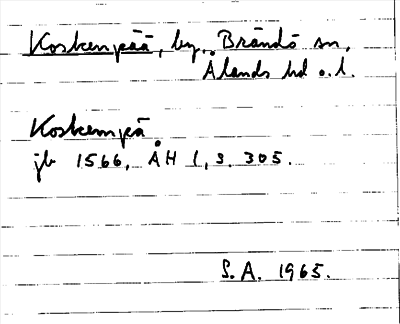 Koskenpää, by, Brändö sn,
Ålands hd o. l.
Koskenpä
jb 1566, ÅH 1, s. 305.
S. A. 1965.